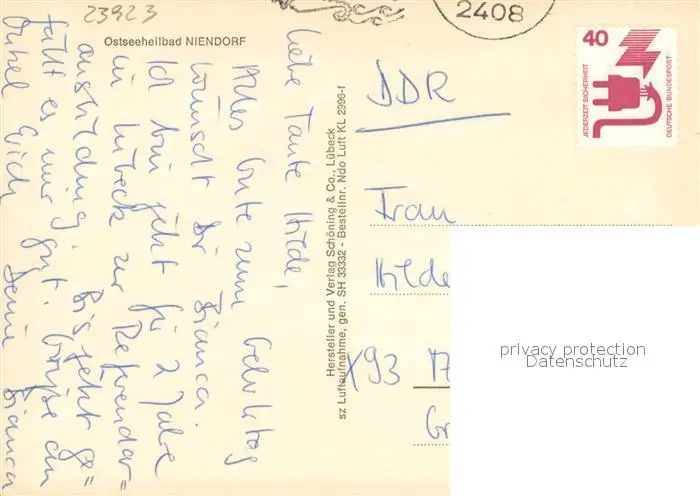 23923
Ostseeheilbad NIENDORF
2408
40
JEDERZEIT SICHERHEIT
DEUTSCHE BUNDESPOST
Liebe Tante Hilde,
Alles Gute zum Geburtstag
wünscht Dir Bianca.
Ich bin jetzt für 2 Jahre
in Lübeck zur Referendar=
ausbildung. Bis jetzt ge=
fällt es mir gut. Grüße an
Onkel Erich Deine Bianca
Hersteller und Verlag Schöning & Co., Lübeck
sz Luftaufnahme, gen. SH 33332 - Bestellnr. Ndo Luft KL 2996-f
DDR
Frau
Hilde
X93
Gr
privacy protection
Datenschutz